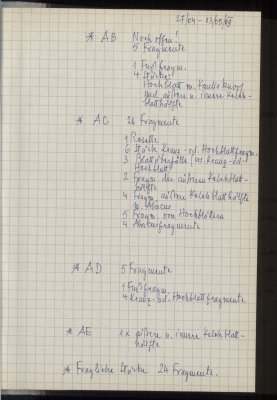 27/04 - 03/05/
* AB Noch offen!
5 Fragmente
1 Fußfragm.
4 Stücke:
Hochblatt m. Caulisknopf
und äußere u. innere Kelch-
blatthälfte
* AC 24 Fragmente
1 Rosette
6 Stück Kranz- od. Hochblattfragm.
3 Blattüberfälle (v. Kranz- od.
Hochblatt)
2 Fragm. der äußeren Kelchblatt-
hälfte
4 Fragm. äußere Kelchblatthälfte
m. Abacus
5 Fragm. von Hochblättern
4 Abacusfragmente
* AD 5 Fragmente
1 Fußfragm.
4 Kranz- od. Hochblattfragmente
* AE 1 x äußere u. innere Kelchblatt-
hälfte
* Fragliche Stücke 24 Fragmente.